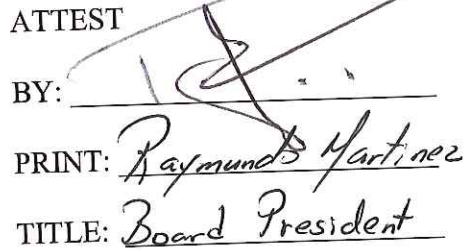 ATTEST
BY:
PRINT: Raymundo Martinez
TITLE: Board President